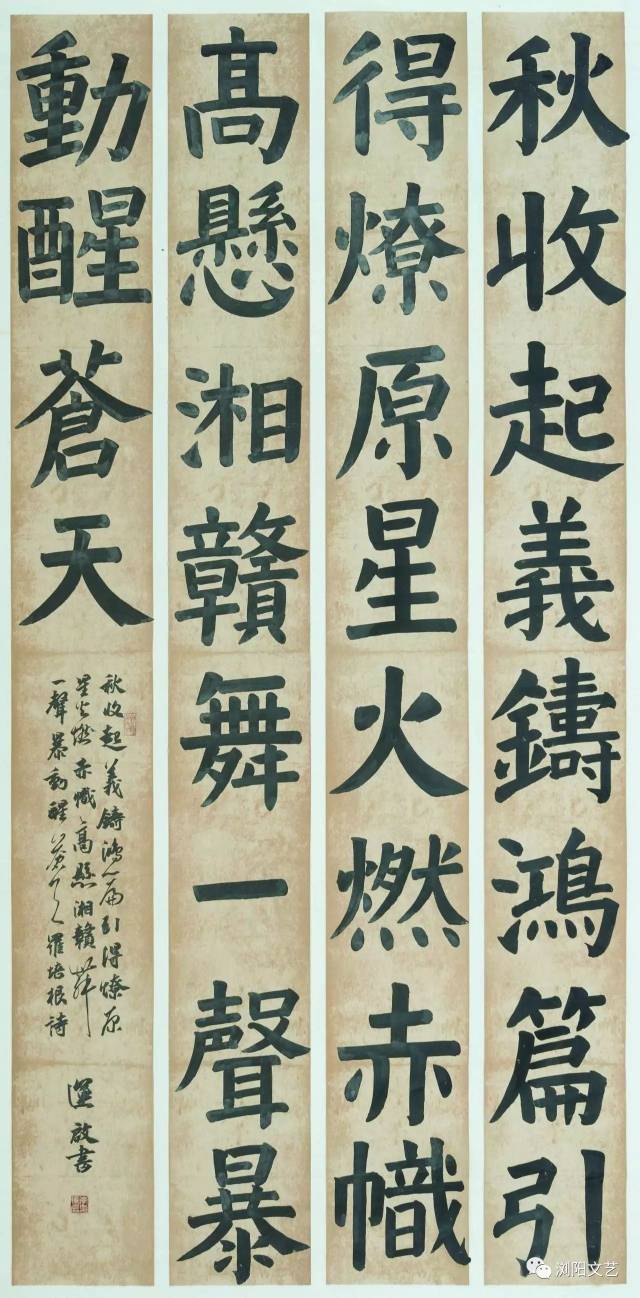 秋收起義鑄鴻篇引
得燎原星火燃赤幟
高懸湘贛舞一聲暴
動醒蒼天
秋收起義鑄鴻篇引得燎原
星火燃赤幟高懸湘贛舞
一聲暴動醒蒼天羅培根詩
運啟書
浏阳文艺